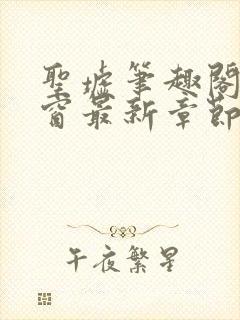 聖墟筆趣閣
窗最新章節
午夜繁星